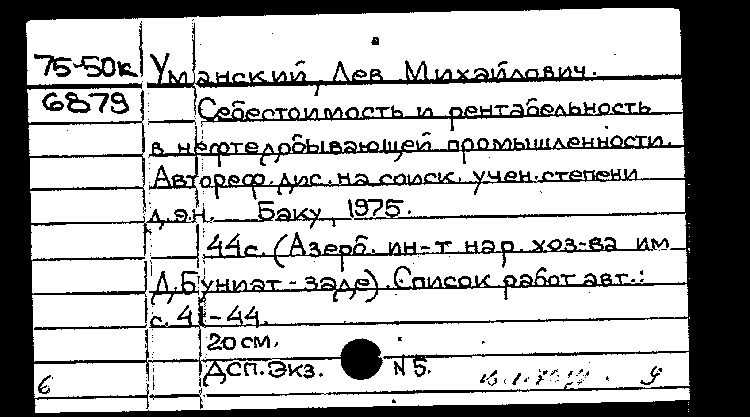 75-50к Уманский, Лев Михайлович.
6879 Себестоимость и рентабельность
в нефтедобывающей промышленности.
Автореф. дис. на соиск. учен. степени
д.э.н. Баку, 1975.
44с. (Азерб. ин-т нар. хоз-ва им
Д. Буниат-заде). Список работ авт.:
с. 41-44.
20 см.
ДСП. Экз. N 5.
6